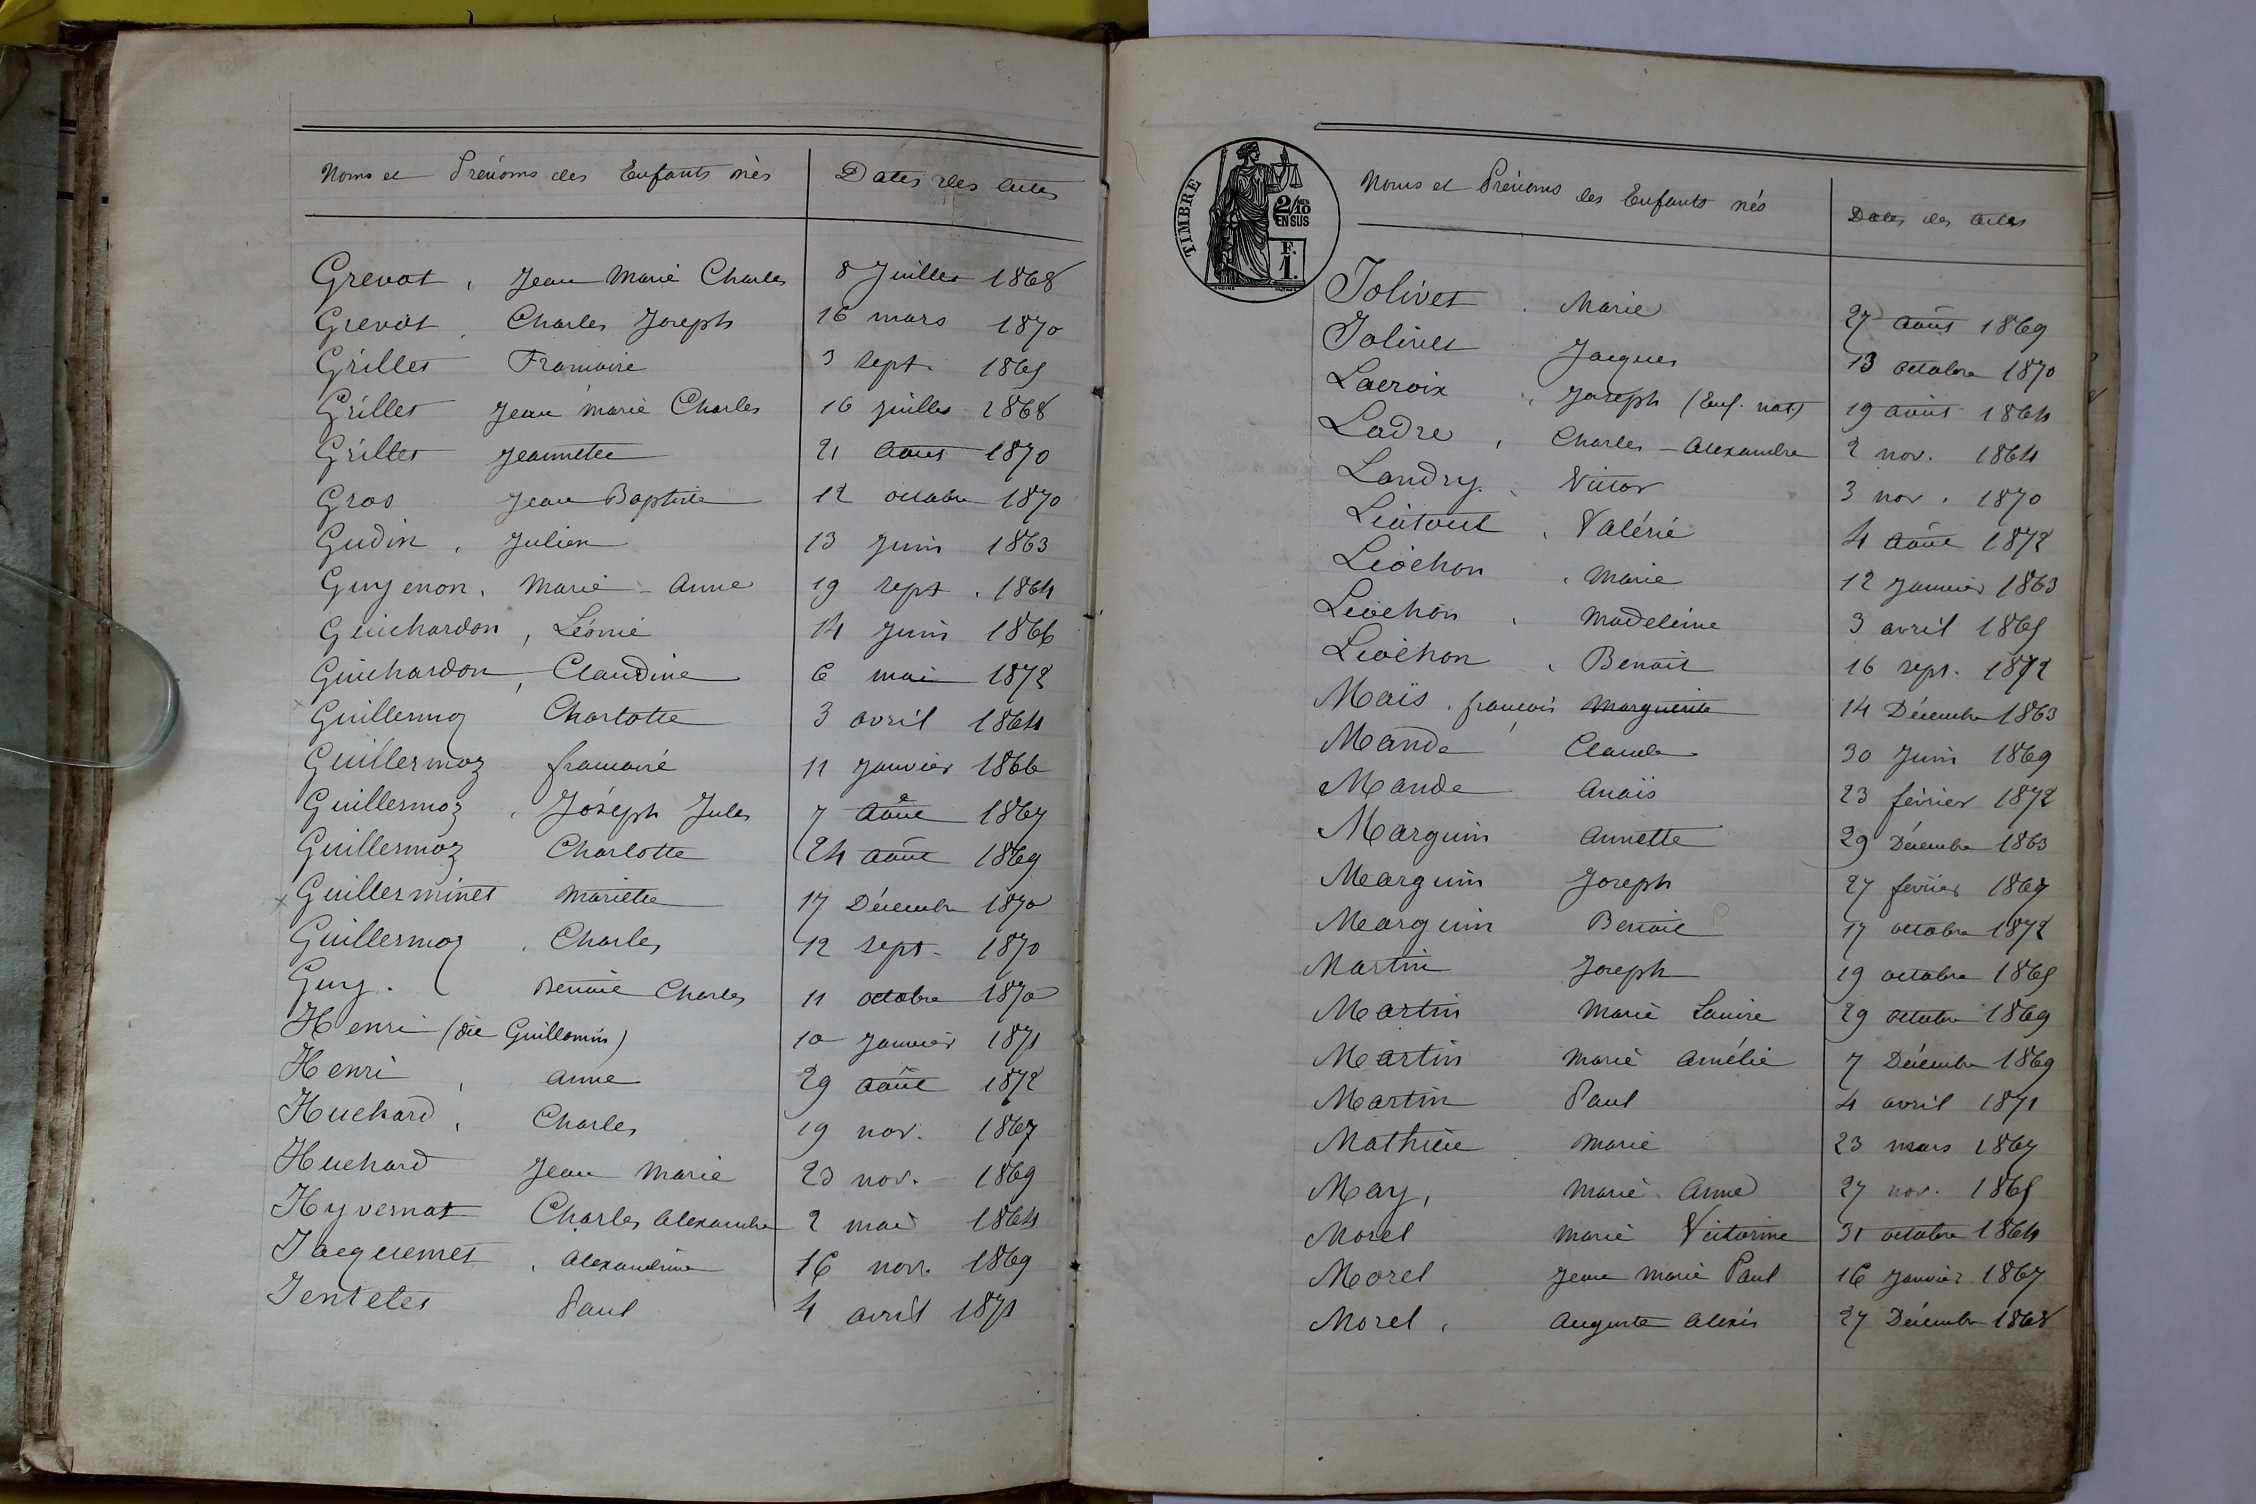 Noms et Prénoms des Enfants nés Dates des Actes
Grevat, Jean Marie Charles 8 Juillet 1868
Grevat, Charles Joseph 16 mars 1870
Grillet Françoise 3 sept. 1865
Grillet Jean Marie Charles 16 juillet 1868
Grillet Jeannette 21 Août 1870
Gros Jean Baptiste 12 octobre 1870
Gudin, Julien 13 Juin 1863
Guyenon, Marie-Anne 19 sept. 1864
Guichardon, Léonie 14 Juin 1866
Guichardon, Claudine 6 mai 1872
Guillermoz Charlotte 3 avril 1864
Guillermoz françoise 11 Janvier 1866
Guillermoz, Joseph Jules 7 Août 1867
Guillermoz Charlotte 24 Août 1869
Guillerminet Mariette 17 Décembre 1870
Guillermoz, Charles 12 sept. 1870
Guy. Benoit Charles 11 octobre 1870
Henri (dit Guillomin) 10 Janvier 1871
Henri, Anne 29 Août 1872
Huchard, Charles 19 nov. 1867
Huchard Jean Marie 20 nov. 1869
Hyvernat Charles Alexandre 2 mai 1864
Jacquemet, Alexandrine 16 nov. 1869
Jentetes Paul 4 avril 1871
TIMBRE
2/10
EN SUS
F.
1.
Noms et Prénoms des Enfants nés Dates des Actes
Jolivet. Marie 27 Août 1869
Jolivet Jacques 13 octobre 1870
Lacroix, Joseph (Enf. nat) 19 août 1864
Ladre, Charles-Alexandre 2 nov. 1864
Landry. Victor 3 nov. 1870
Liatout, Valérie 4 Août 1872
Liochon, Marie 12 Janvier 1863
Liochon, Madeleine 3 avril 1865
Liochon, Benoit 16 sept. 1872
Maïs, françois Marguerite 14 Décembre 1863
Mande Claude 30 Juin 1869
Mande Anaïs 23 février 1872
Marguin Annette 29 Décembre 1863
Marguin Joseph 27 février 1867
Marguin Benoit 17 octobre 1872
Martin Joseph 19 octobre 1865
Martin Marie Louise 29 octobre 1869
Martin Marie Amélie 7 Décembre 1869
Martin Paul 4 avril 1871
Mathieu Marie 23 mars 1867
May, Marie Anne 27 nov. 1865
Morel Marie Victorine 31 octobre 1864
Morel Jean Marie Paul 16 Janvier 1867
Morel, Auguste Alexis 27 Décembre 1868